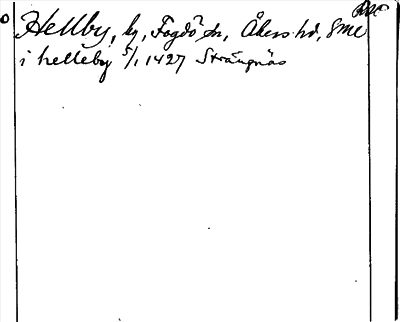 Hellby, by, Fogdö sn, Åkers hd, Sml
i helleby 5/1 1427 Strängnäs